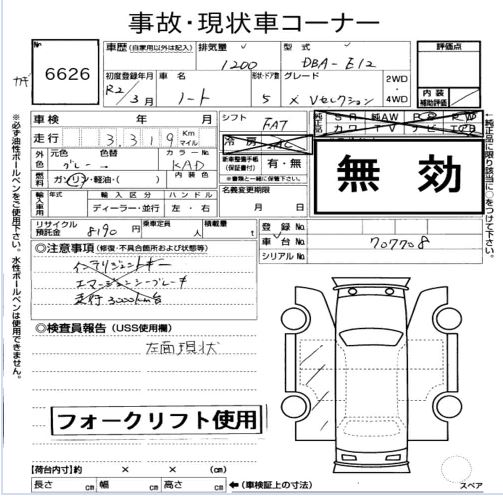 事故・現状車コーナー
6626
カギ
車歴(自家用以外は記入) 排気量 型式 評価点
1200 DBA-E12
初度登録年月 車名 形状・ドア数 グレード 2WD・4WD
R2/3月 ノート 5 X Vセレクション
内装補助評価
車検 年 月 シフト FAT
走行 3 3 1 9 Km マイル 冷房 AC
純正品 SR 純AW PS PW
カワ TV ナビ エアB
外色 元色 色替 カラーNo. 新車整備手帳(保証書付) 有・無
グレー KAD
※書類と一緒に保管下さい。
燃料 ガソリン・軽油・( ) 内装色
無効
輸入車用 年式 輸入区分 ハンドル 名義変更期限
ディーラー・並行 左・右 月 日
リサイクル預託金 8190円 乗車定員 人 積載量 t
登録No.
車台No. 707708
シリアルNo.
◎注意事項(修復・不具合個所および状態等)
インテリジェントキー
エマージェンシーブレーキ
走行3000km台
◎検査員報告(USS使用欄)
左面現状
フォークリフト使用
【荷台内寸】約 × × (cm)
長さ cm 幅 cm 高さ cm ←(車検証上の寸法)
スペア
※必ず油性ボールペンをご使用下さい。水性ボールペンは使用できません。
←純正品に限り該当に○をつけて下さい。